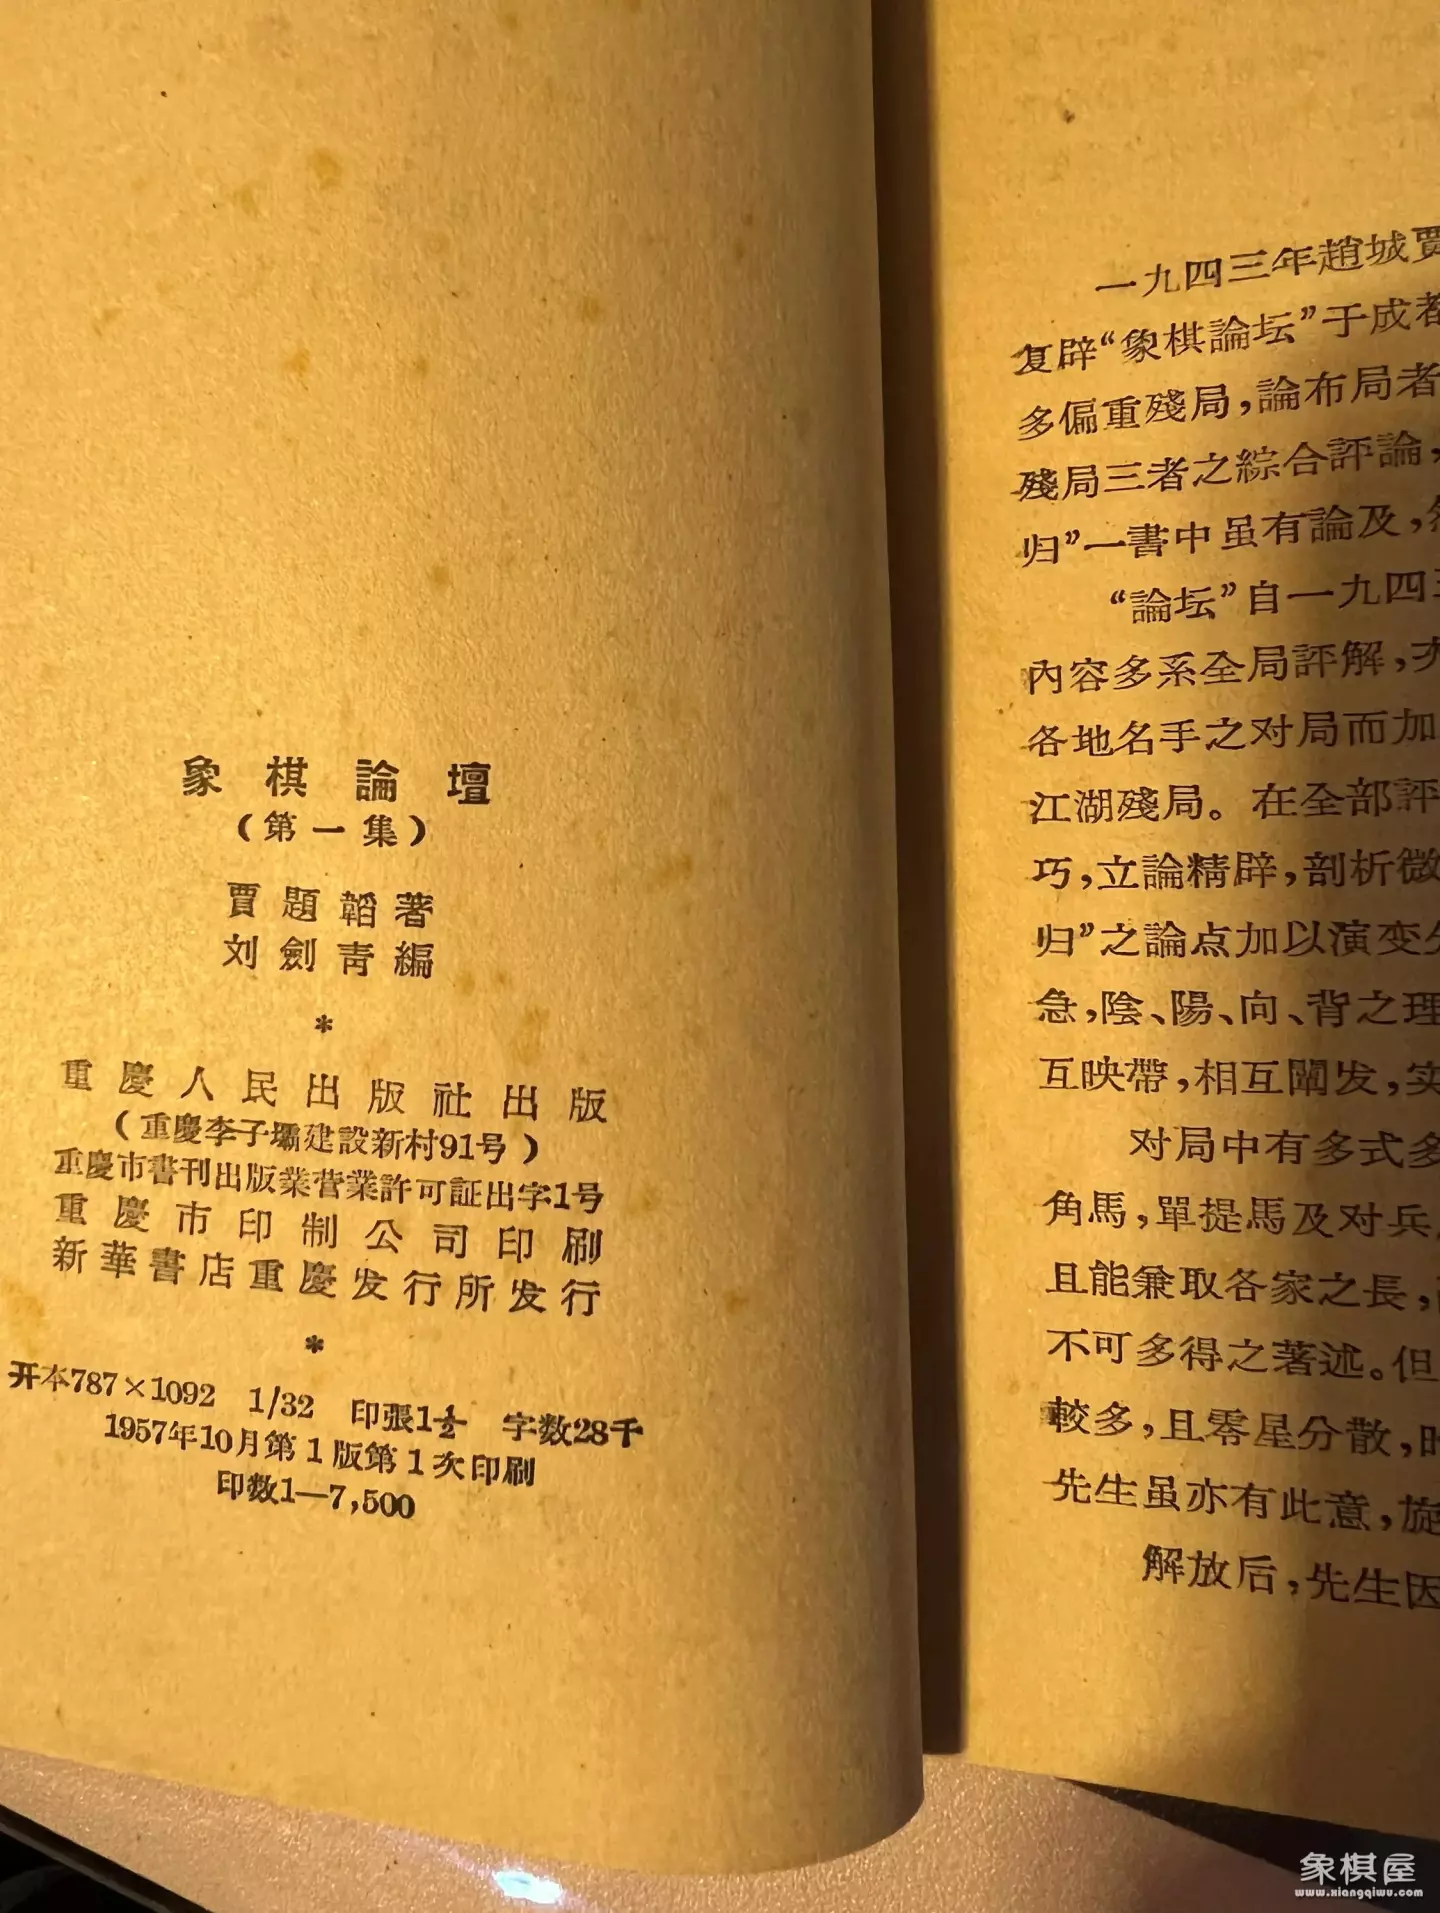 象棋論壇
(第一集)
賈題韜著
刘劍靑編
*
重慶人民出版社出版
(重慶李子壩建設新村91号)
重慶市書刊出版業营業許可証出字1号
重慶市印制公司印刷
新華書店重慶发行所发行
*
开本787×1092 1/32 印張1½ 字数28千
1957年10月第1版第1次印刷
印数1—7,500
一九四三年趙城賈
复辟“象棋論坛”于成者
多偏重殘局,論布局者
殘局三者之綜合評論,
归”一書中虽有論及,
“論坛”自一九四
內容多系全局評解,亦
各地名手之对局而加
江湖殘局。在全部評
巧,立論精辟,剖析微
归”之論点加以演变分
急,陰、陽、向、背之理
互映帶,相互闡发,实
对局中有多式多
角馬,單提馬及对兵
且能兼取各家之長,
不可多得之著述。但
較多,且零星分散,
先生虽亦有此意,旋
解放后,先生因
象棋屋
www.xiangqiwu.com